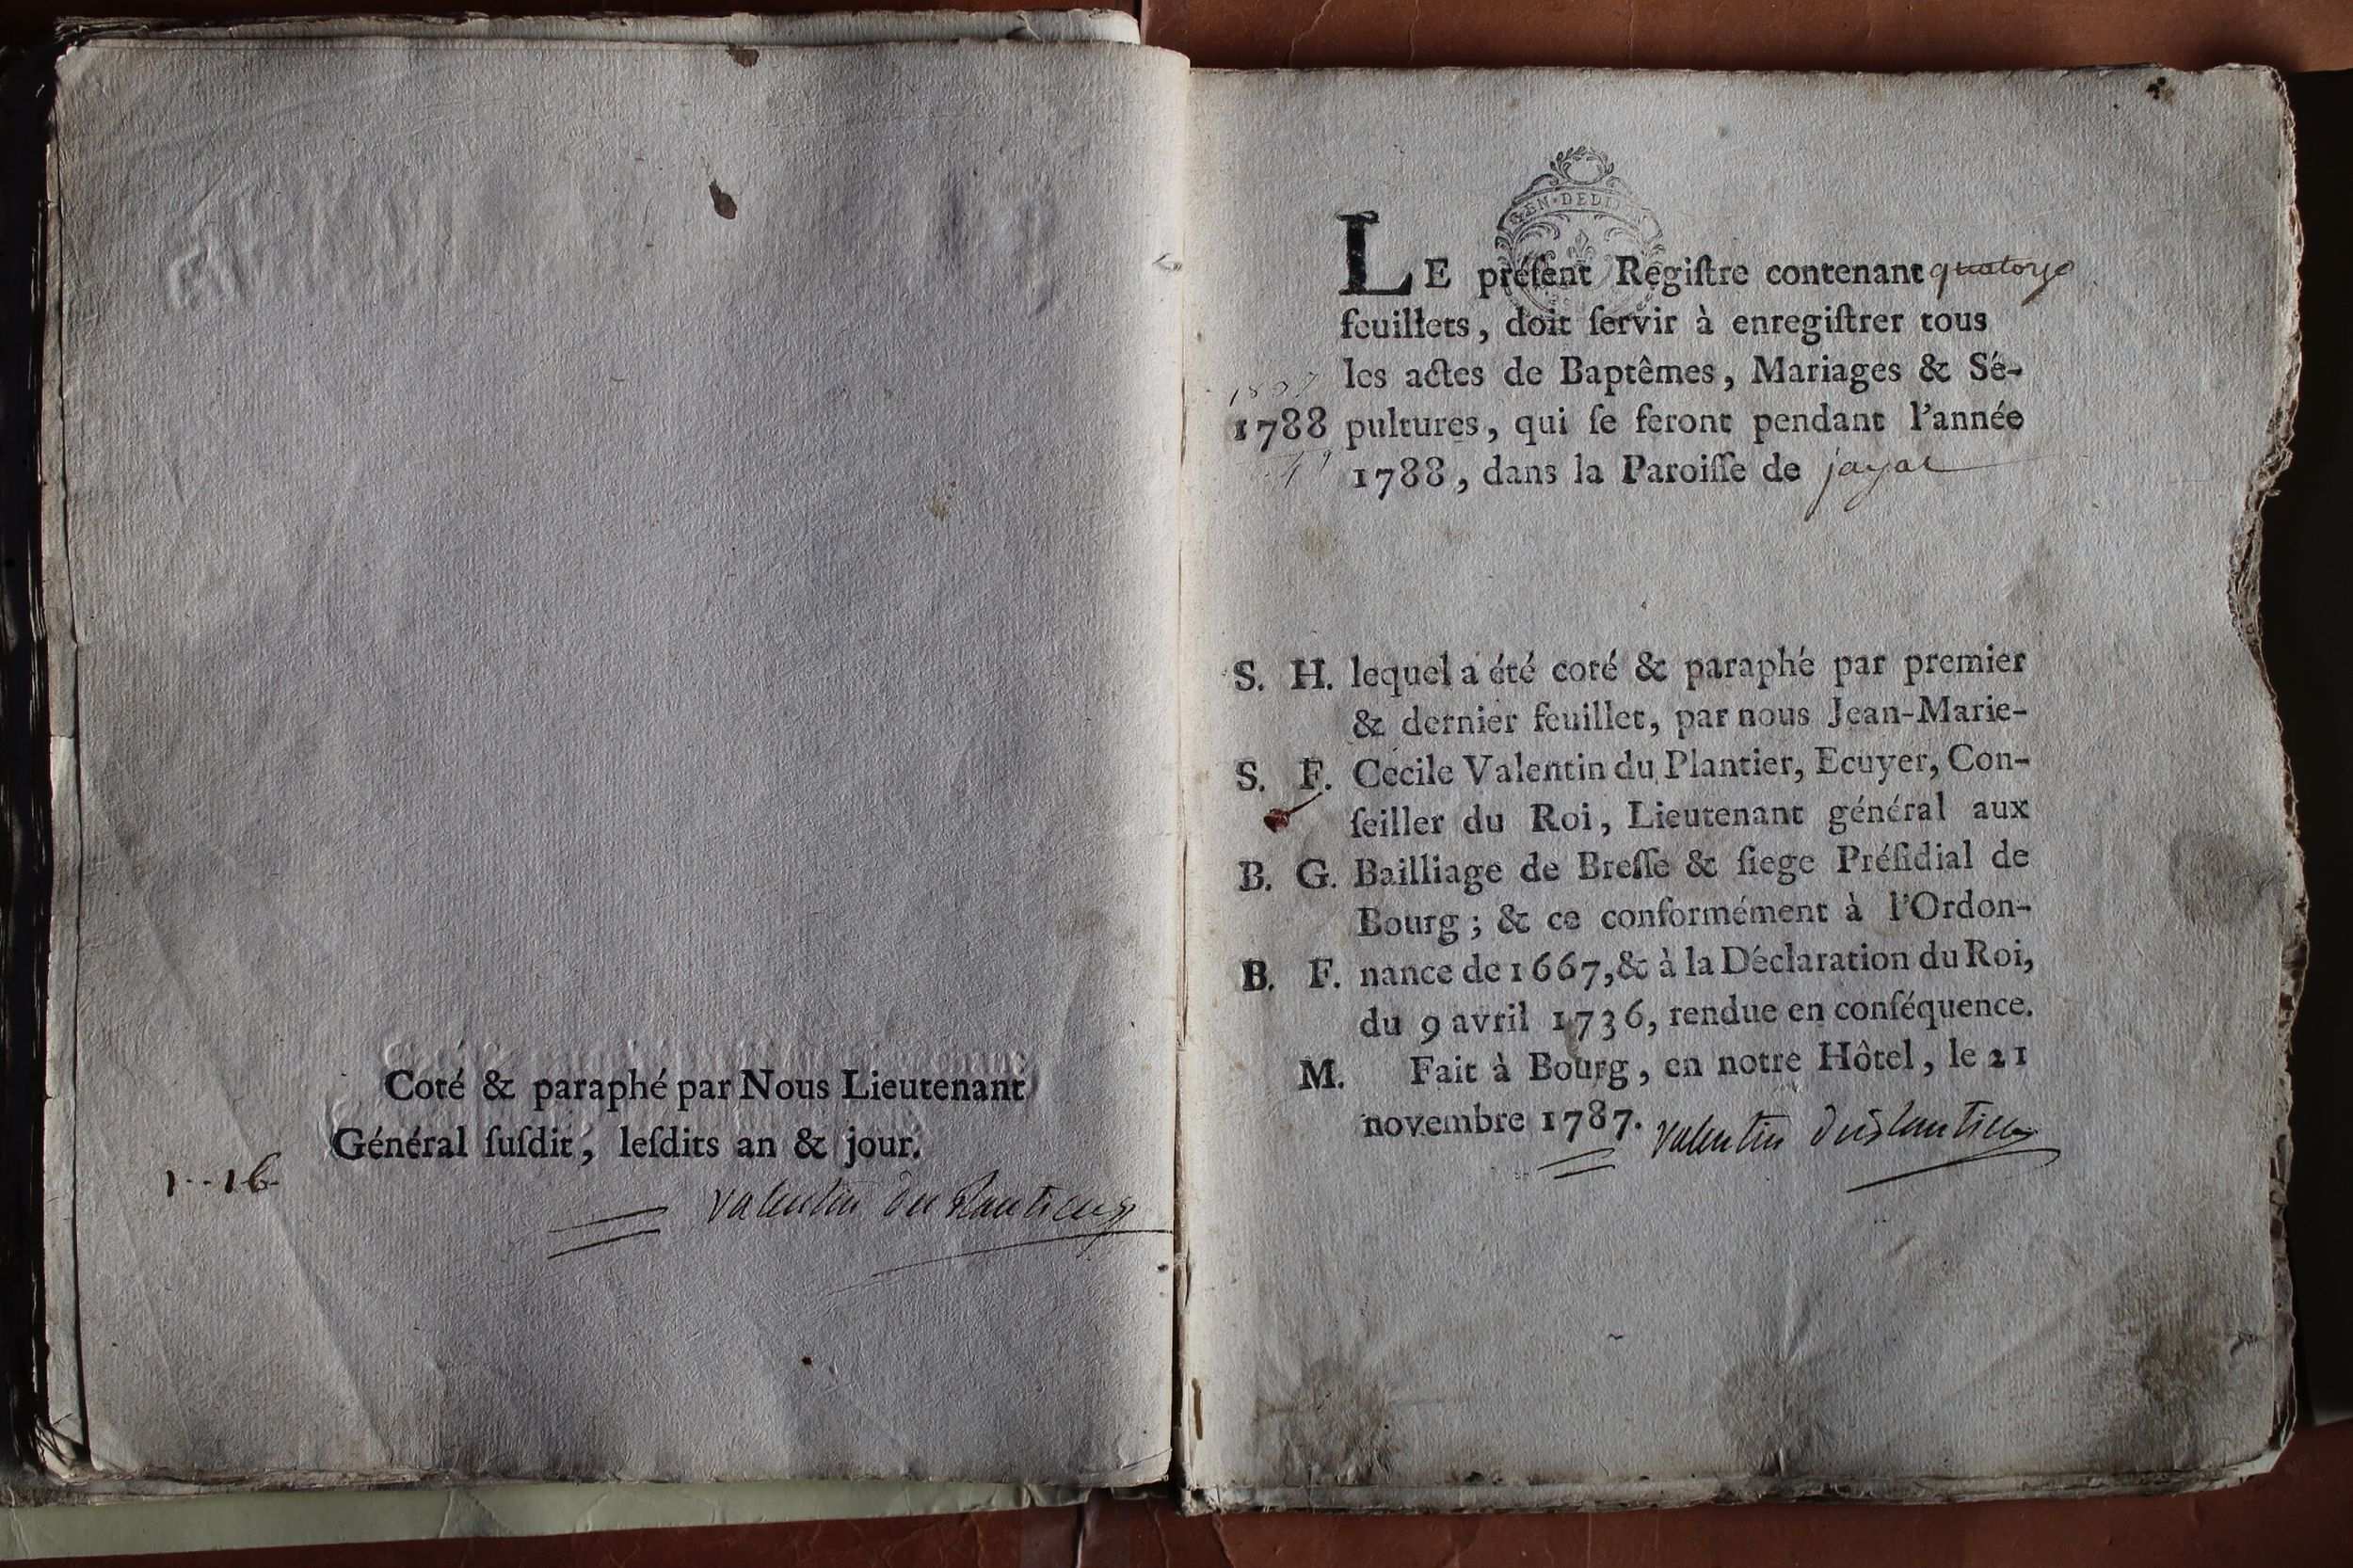 Coté & paraphé par Nous Lieutenant
Général ſuſdit, leſdits an & jour.
1--16-
valentin du plantier
GEN·DEDI
LE préſent Regiſtre contenant quatorze
feuillets, doit ſervir à enregiſtrer tous
les actes de Baptêmes, Mariages & Sé-
1788 pultures, qui ſe feront pendant l'année
1788, dans la Paroiſſe de jayat
S. H. lequel a été coté & paraphé par premier
& dernier feuillet, par nous Jean-Marie-
S. F. Cecile Valentin du Plantier, Ecuyer, Con-
ſeiller du Roi, Lieutenant général aux
B. G. Bailliage de Breſſe & ſiege Préſidial de
Bourg ; & ce conformément à l'Ordon-
B. F. nance de 1667, & à la Déclaration du Roi,
du 9 avril 1736, rendue en conſéquence.
M. Fait à Bourg, en notre Hôtel, le 21
novembre 1787. valentin duplantier